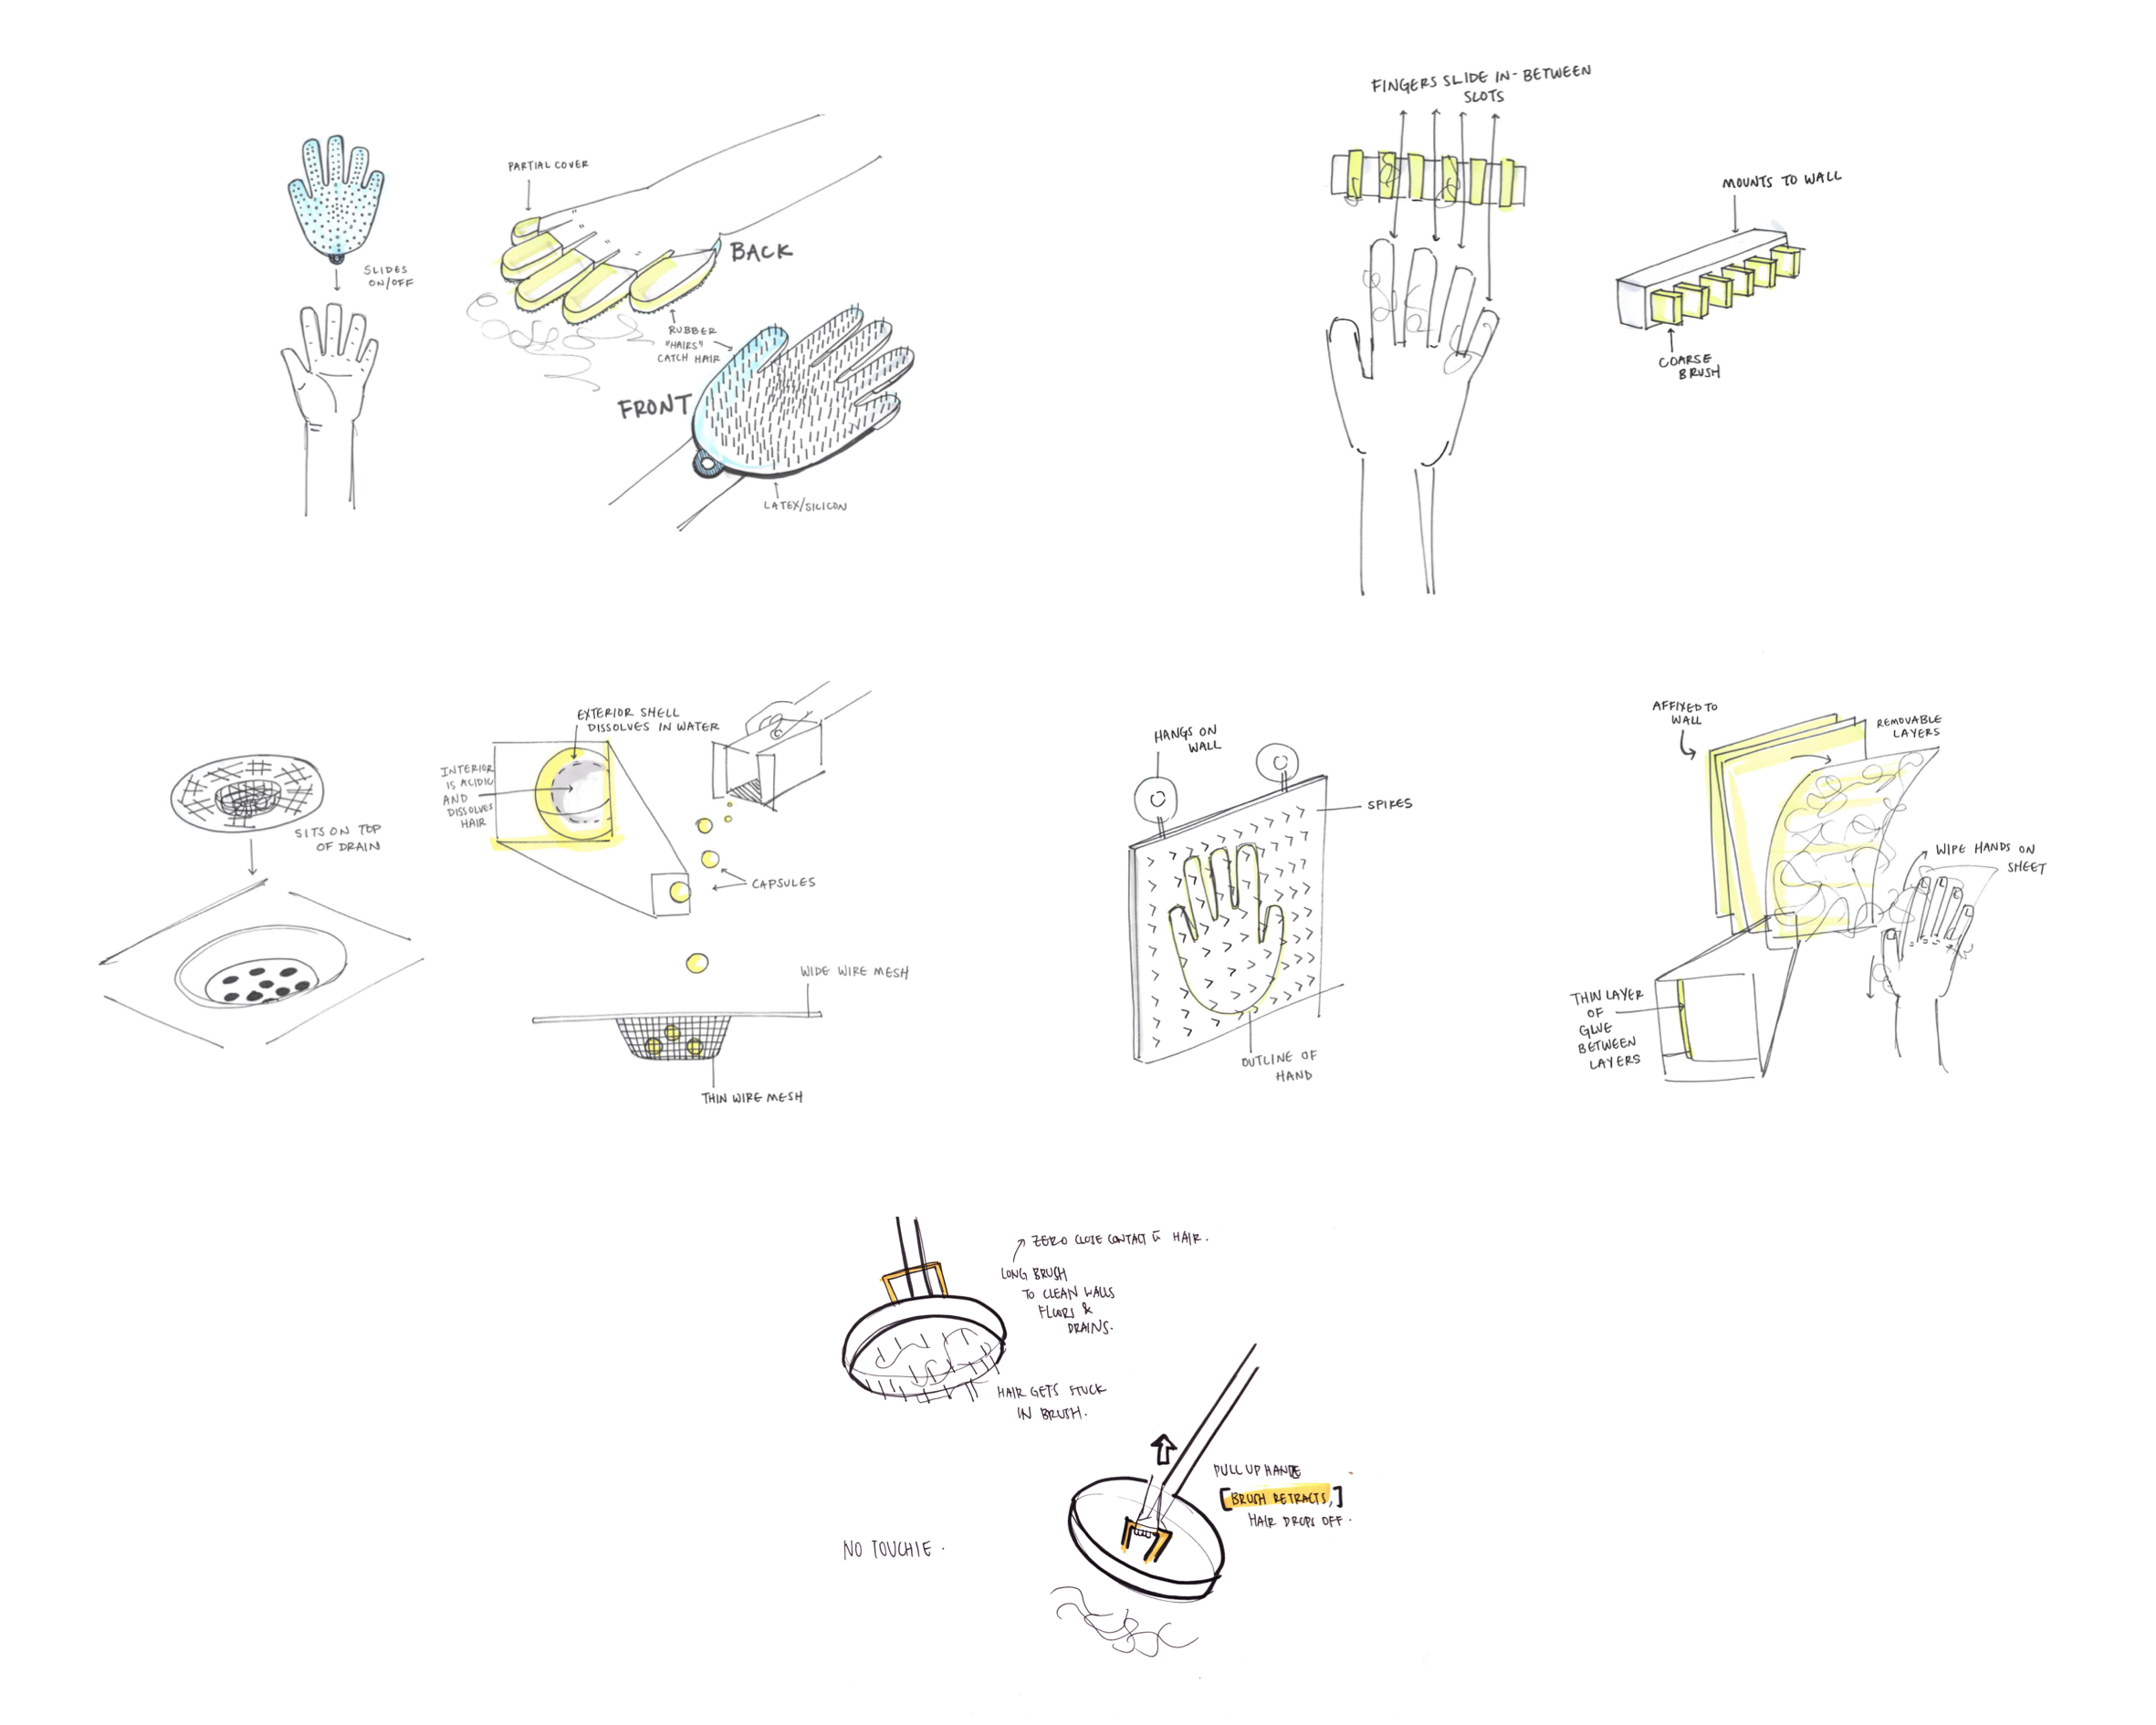 SLIDES
ON/OFF
PARTIAL COVER
BACK
RUBBER
"HAIRS"
CATCH HAIR
FRONT
LATEX/SILICON
FINGERS SLIDE IN-BETWEEN
SLOTS
MOUNTS TO WALL
COARSE
BRUSH
SITS ON TOP
OF DRAIN
EXTERIOR SHELL
DISSOLVES IN WATER
INTERIOR
IS ACIDIC
AND
DISSOLVES
HAIR
CAPSULES
WIDE WIRE MESH
THIN WIRE MESH
HANGS ON
WALL
SPIKES
OUTLINE OF
HAND
AFFIXED TO
WALL
REMOVABLE
LAYERS
WIPE HANDS ON
SHEET
THIN LAYER
OF
GLUE
BETWEEN
LAYERS
ZERO CLOSE CONTACT HAIR.
LONG BRUSH
TO CLEAN WALLS
FLOORS &
DRAINS.
HAIR GETS STUCK
IN BRUSH.
PULL UP
[BRUSH RETRACTS,]
HAIR DROPS OFF.
NO TOUCHIE.